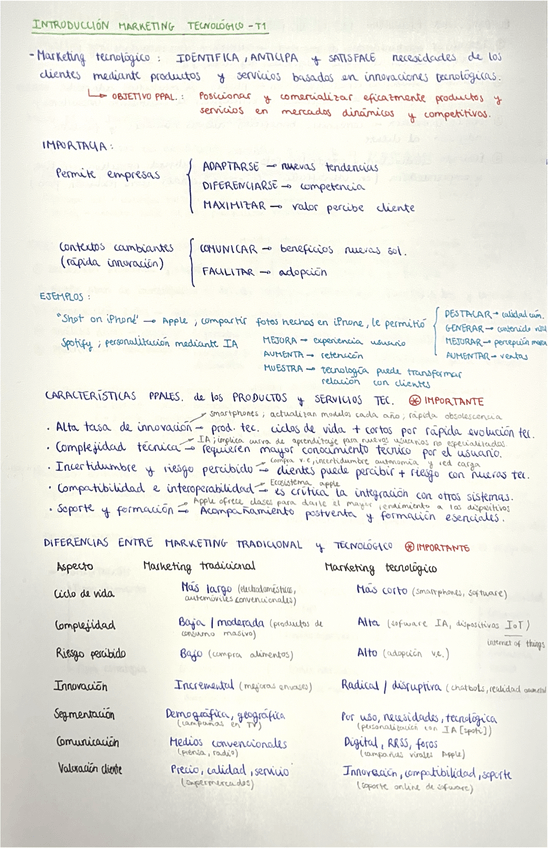 INTRODUCCIÓN MARKETING TECNOLÓGICO - T1
- Marketing tecnológico : IDENTIFICA, ANTICIPA y SATISFACE necesidades de los
clientes mediante productos y servicios basados en innovaciones tecnológicas.
OBJETIVO PPAL.: Posicionar y comercializar eficazmente productos y
servicios en mercados dinámicos y competitivos.
IMPORTACIA:
Permite empresas
ADAPTARSE → nuevas tendencias
DIFERENCIARSE → competencia
MAXIMIZAR → valor percibe cliente
Contextos cambiantes
(rápida innovación)
COMUNICAR → beneficios nuevas sol.
FACILITAR → adopción
EJEMPLOS:
"Shot on iPhone" → Apple ; compartir fotos hechas en iPhone, le permitió
DESTACAR → calidad cám.
GENERAR → contenido
MEJORAR → percepción marca
AUMENTAR → ventas
Spotify ; personalización mediante IA
MEJORA → experiencia usuario
AUMENTA → retención
MUESTRA → tecnología puede transformar
relación con clientes
CARACTERÍSTICAS PPALES. de los PRODUCTOS y SERVICIOS TEC. IMPORTANTE
smartphones ; actualizan modelos cada año, rápida obsolescencia
· Alta tasa de innovación → prod. tec. ciclos de vida + cortos por rápida evolución tec.
IA ; implica curva de aprendizaje para nuevos usuarios no especializados
· Complejidad técnica → requieren mayor conocimiento técnico por el usuario.
compra v.e, incertidumbre autonomía y red carga
· Incertidumbre y riesgo percibido → clientes puede percibir + riesgo con nuevas tec.
Ecosistema apple
· Compatibilidad e interoperabilidad → es crítica la integración con otros sistemas.
Apple ofrece clases para darle el mayor rendimiento a los dispositivos
· Soporte y formación → Acompañamiento postventa y formación esenciales.
DIFERENCIAS ENTRE MARKETING TRADICIONAL y TECNOLÓGICO IMPORTANTE
Aspecto Marketing tradicional Marketing tecnológico
Ciclo de vida Más largo (electrodomésticos, Más corto (smartphones, software)
automóviles convencionales)
Complejidad Baja / moderada (productos de Alta (software IA, dispositivos IoT)
consumo masivo) internet of things
Riesgo percibido Bajo (compra alimentos) Alto (adopción v.e.)
Innovación Incremental (mejoras envases) Radical / disruptiva (chatbots, realidad
Segmentación Demográfica, geográfica Por uso, necesidades, tecnológica
(campañas en TV) (personalización con IA [spoti])
Comunicación Medios convencionales Digital, RRSS, foros
(prensa, radio) (campañas virales Apple)
Valoración cliente Precio, calidad, servicio Innovación, compatibilidad, soporte
(supermercados) (soporte online de software)